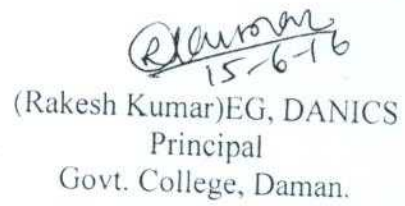 15-6-16
(Rakesh Kumar)EG, DANICS
Principal
Govt. College, Daman.